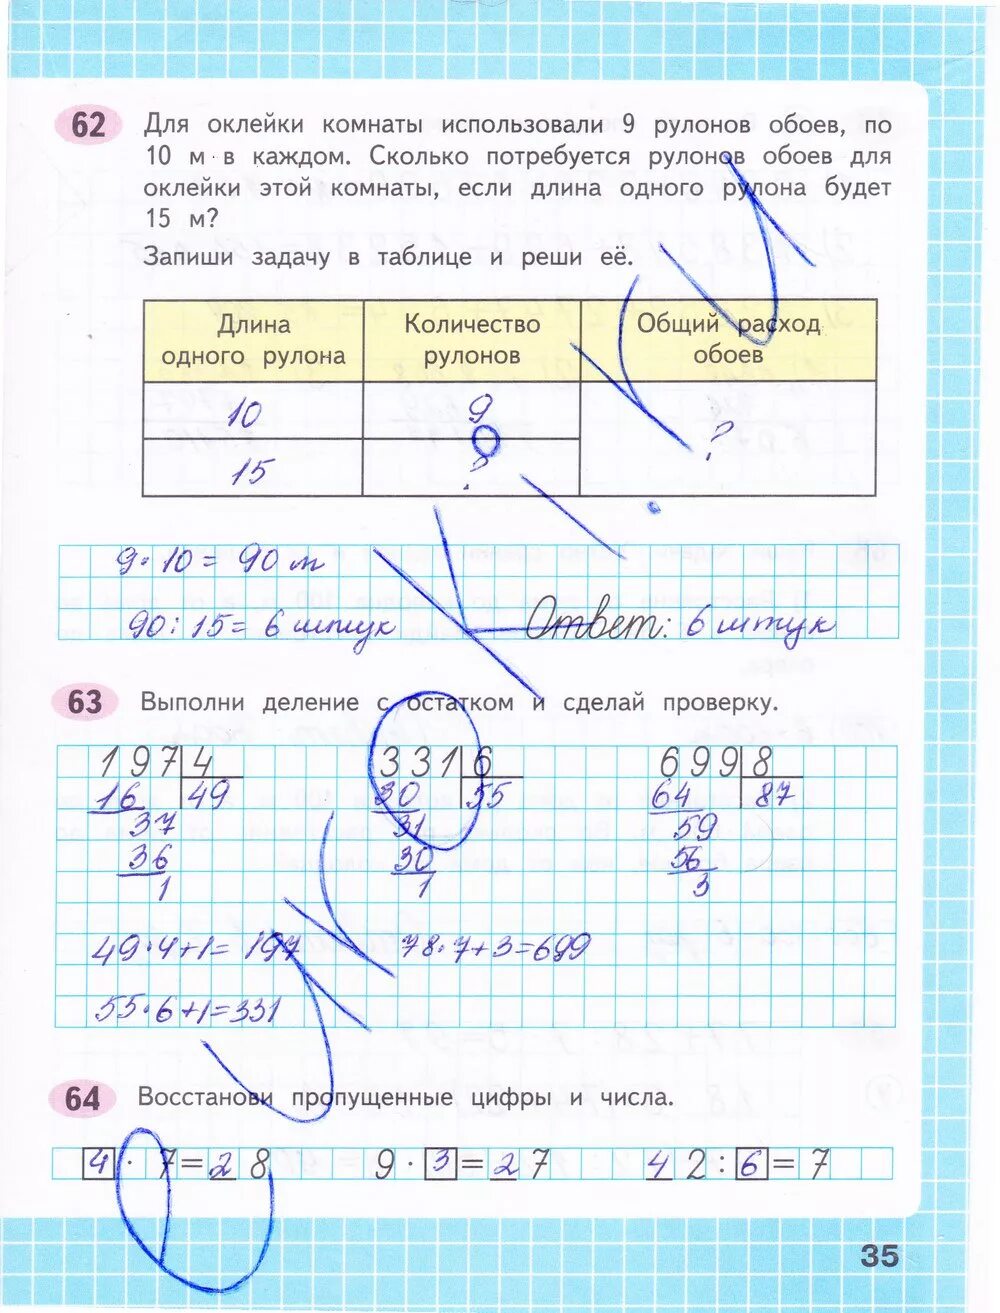 62 Для оклейки комнаты использовали 9 рулонов обоев, по
10 м в каждом. Сколько потребуется рулонов обоев для
оклейки этой комнаты, если длина одного рулона будет
15 м?
Запиши задачу в таблице и реши её.
Длина одного рулона Количество рулонов Общий расход обоев
10 9
15 ? ?
9·10=90 м
90:15=6 штук Ответ: 6 штук
63 Выполни деление с остатком и сделай проверку.
197 4 331 6 699 8
16 49 30 55 64 87
37 31 59
36 30 56
1 1 3
49·4+1=197 78·7+3=699
55·6+1=331
64 Восстанови пропущенные цифры и числа.
4 · 7=28 9 · 3=27 42:6=7
35